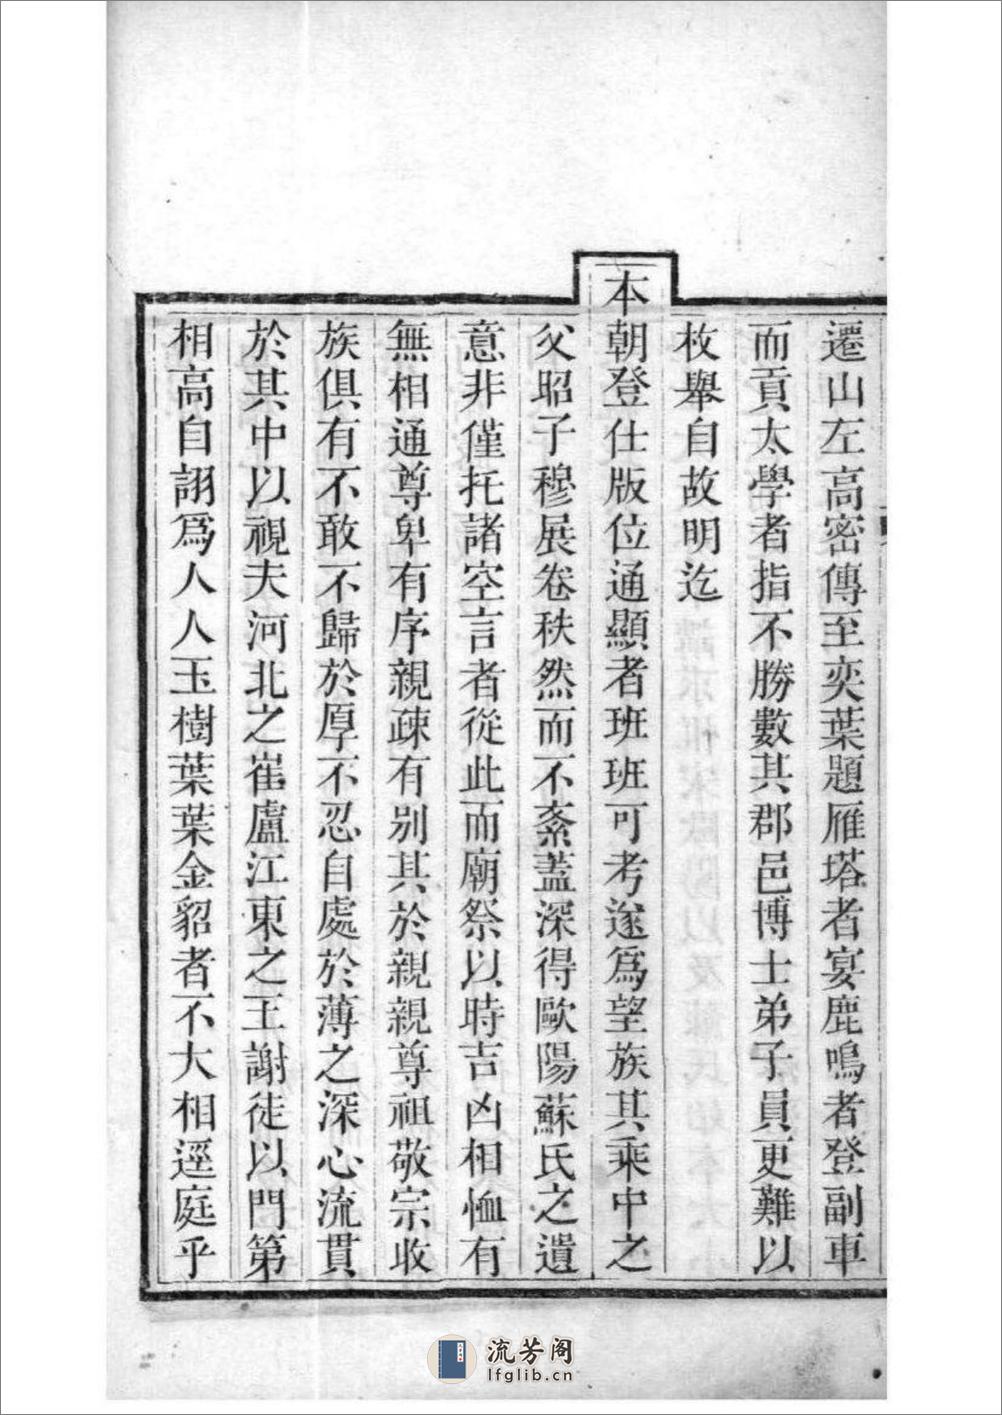 遷山左高密傳至奕葉題雁塔者宴鹿鳴者登副車
而貢太學者指不勝數其郡邑博士弟子員更難以
枚舉自故明迄
本朝登仕版位通顯者班班可考遂爲望族其乘中之
父昭子穆展卷秩然而不紊蓋深得歐陽蘇氏之遺
意非僅托諸空言者從此而廟祭以時吉凶相恤有
無相通尊卑有序親疎有別其於親親尊祖敬宗收
族俱有不敢不歸於厚不忍自處於薄之深心流貫
於其中以視夫河北之崔盧江東之王謝徒以門第
相高自詡爲人人玉樹葉葉金貂者不大相逕庭乎
流芳阁
lfglib.cn